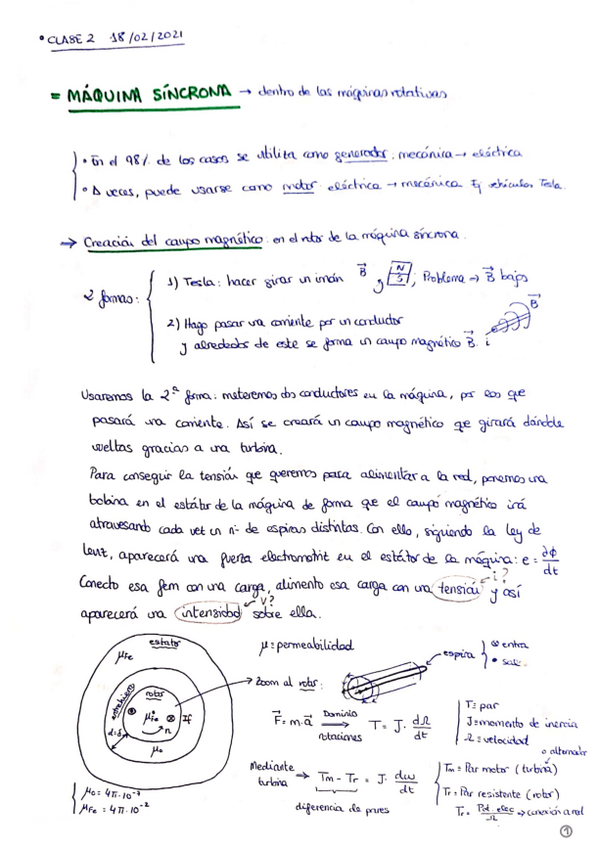 • CLASE 2 18/02/2021
= MÁQUINA SÍNCRONA → dentro de las máquinas rotativas
• En el 98% de los casos se utiliza como generador: mecánica → eléctrica
• A veces, puede usarse como motor: eléctrica → mecánica. Ej vehículos Tesla.
→ Creación del campo magnético: en el rotor de la máquina síncrona.
2 formas:
1) Tesla: hacer girar un imán B N S ; Problema → B bajo
2) Hago pasar una corriente por un conductor
y alrededor de este se forma un campo magnético B. i B
Usaremos la 2ª forma: meteremos dos conductores en la máquina, por los que
pasará una corriente. Así se creará un campo magnético que girará dándole
vueltas gracias a una turbina.
Para conseguir la tensión que queremos para alimentar a la red, ponemos una
bobina en el estátor de la máquina de forma que el campo magnético irá
atravesando cada vez un nº de espiras distintas. Con ello, siguiendo la Ley de
Lenz, aparecerá una fuerza electromotriz en el estátor de la máquina: e = ∂ϕ/dt
Conecto esa fem con una carga, alimento esa carga con una tensión i? y así
aparecerá una intensidad V? sobre ella.
estátor
μFe
entrehierro
rotor
μFe
If
n
μo
μ = permeabilidad
→ Zoom al rotor:
espira
⊗ entra
• sale
F = m·a Dominio rotaciones → T = J · dΩ/dt
T = par
J = momento de inercia
Ω = velocidad
o alternador
Mediante turbina → Tm - Tr = J · dω/dt
diferencia de pares
Tm = Par motor (turbina)
Tr = Par resistente (rotor)
Tr = Pot. elec/Ω → conexión a red
μo = 4π·10⁻⁷
μFe = 4π·10⁻²
1